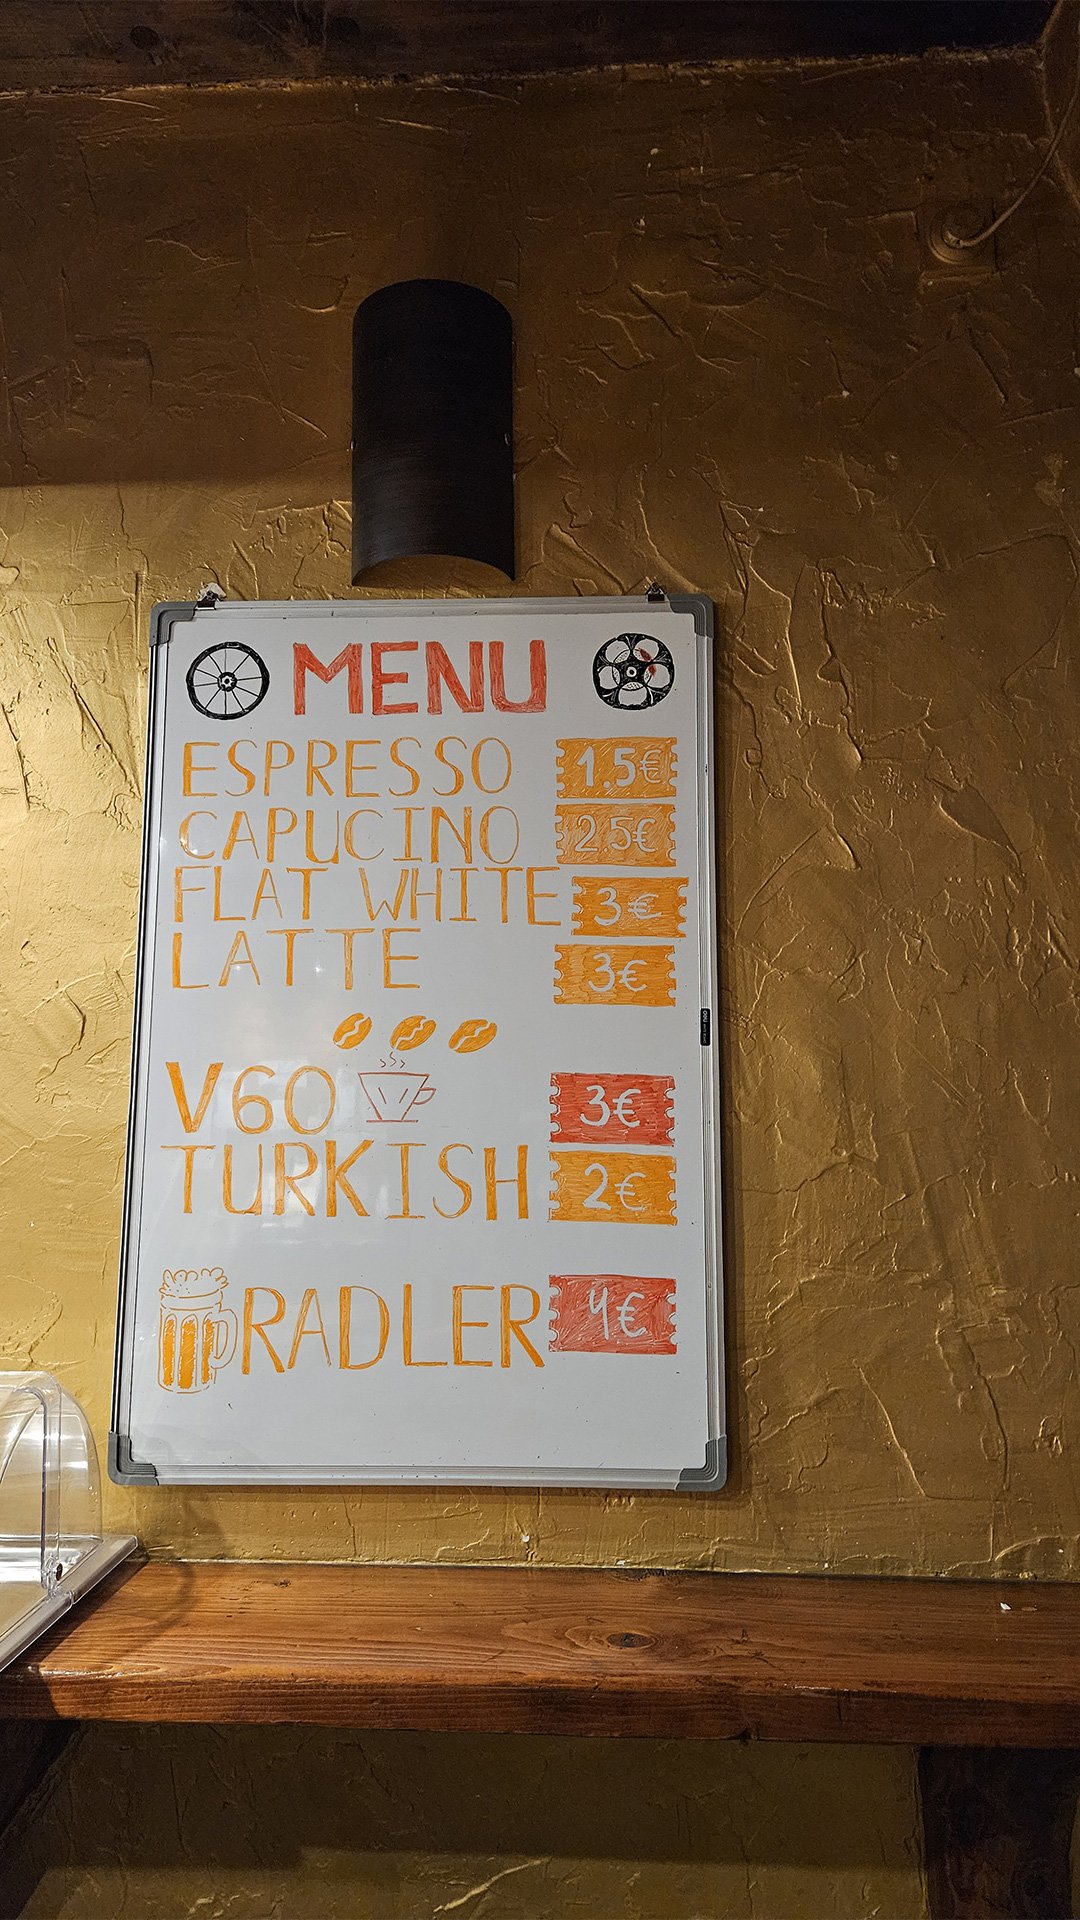 MENU
ESPRESSO 1.5€
CAPUCINO 2.5€
FLAT WHITE 3€
LATTE 3€
V60 3€
TURKISH 2€
RADLER 4€